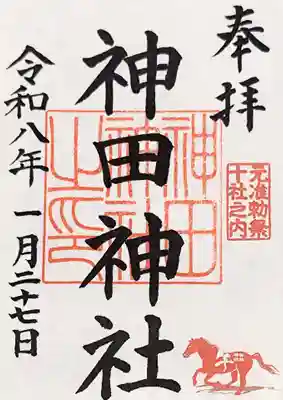 奉拝
元准勅祭
十社之内
神田神社
神田
神社
之印
令和八年 一月二十七日